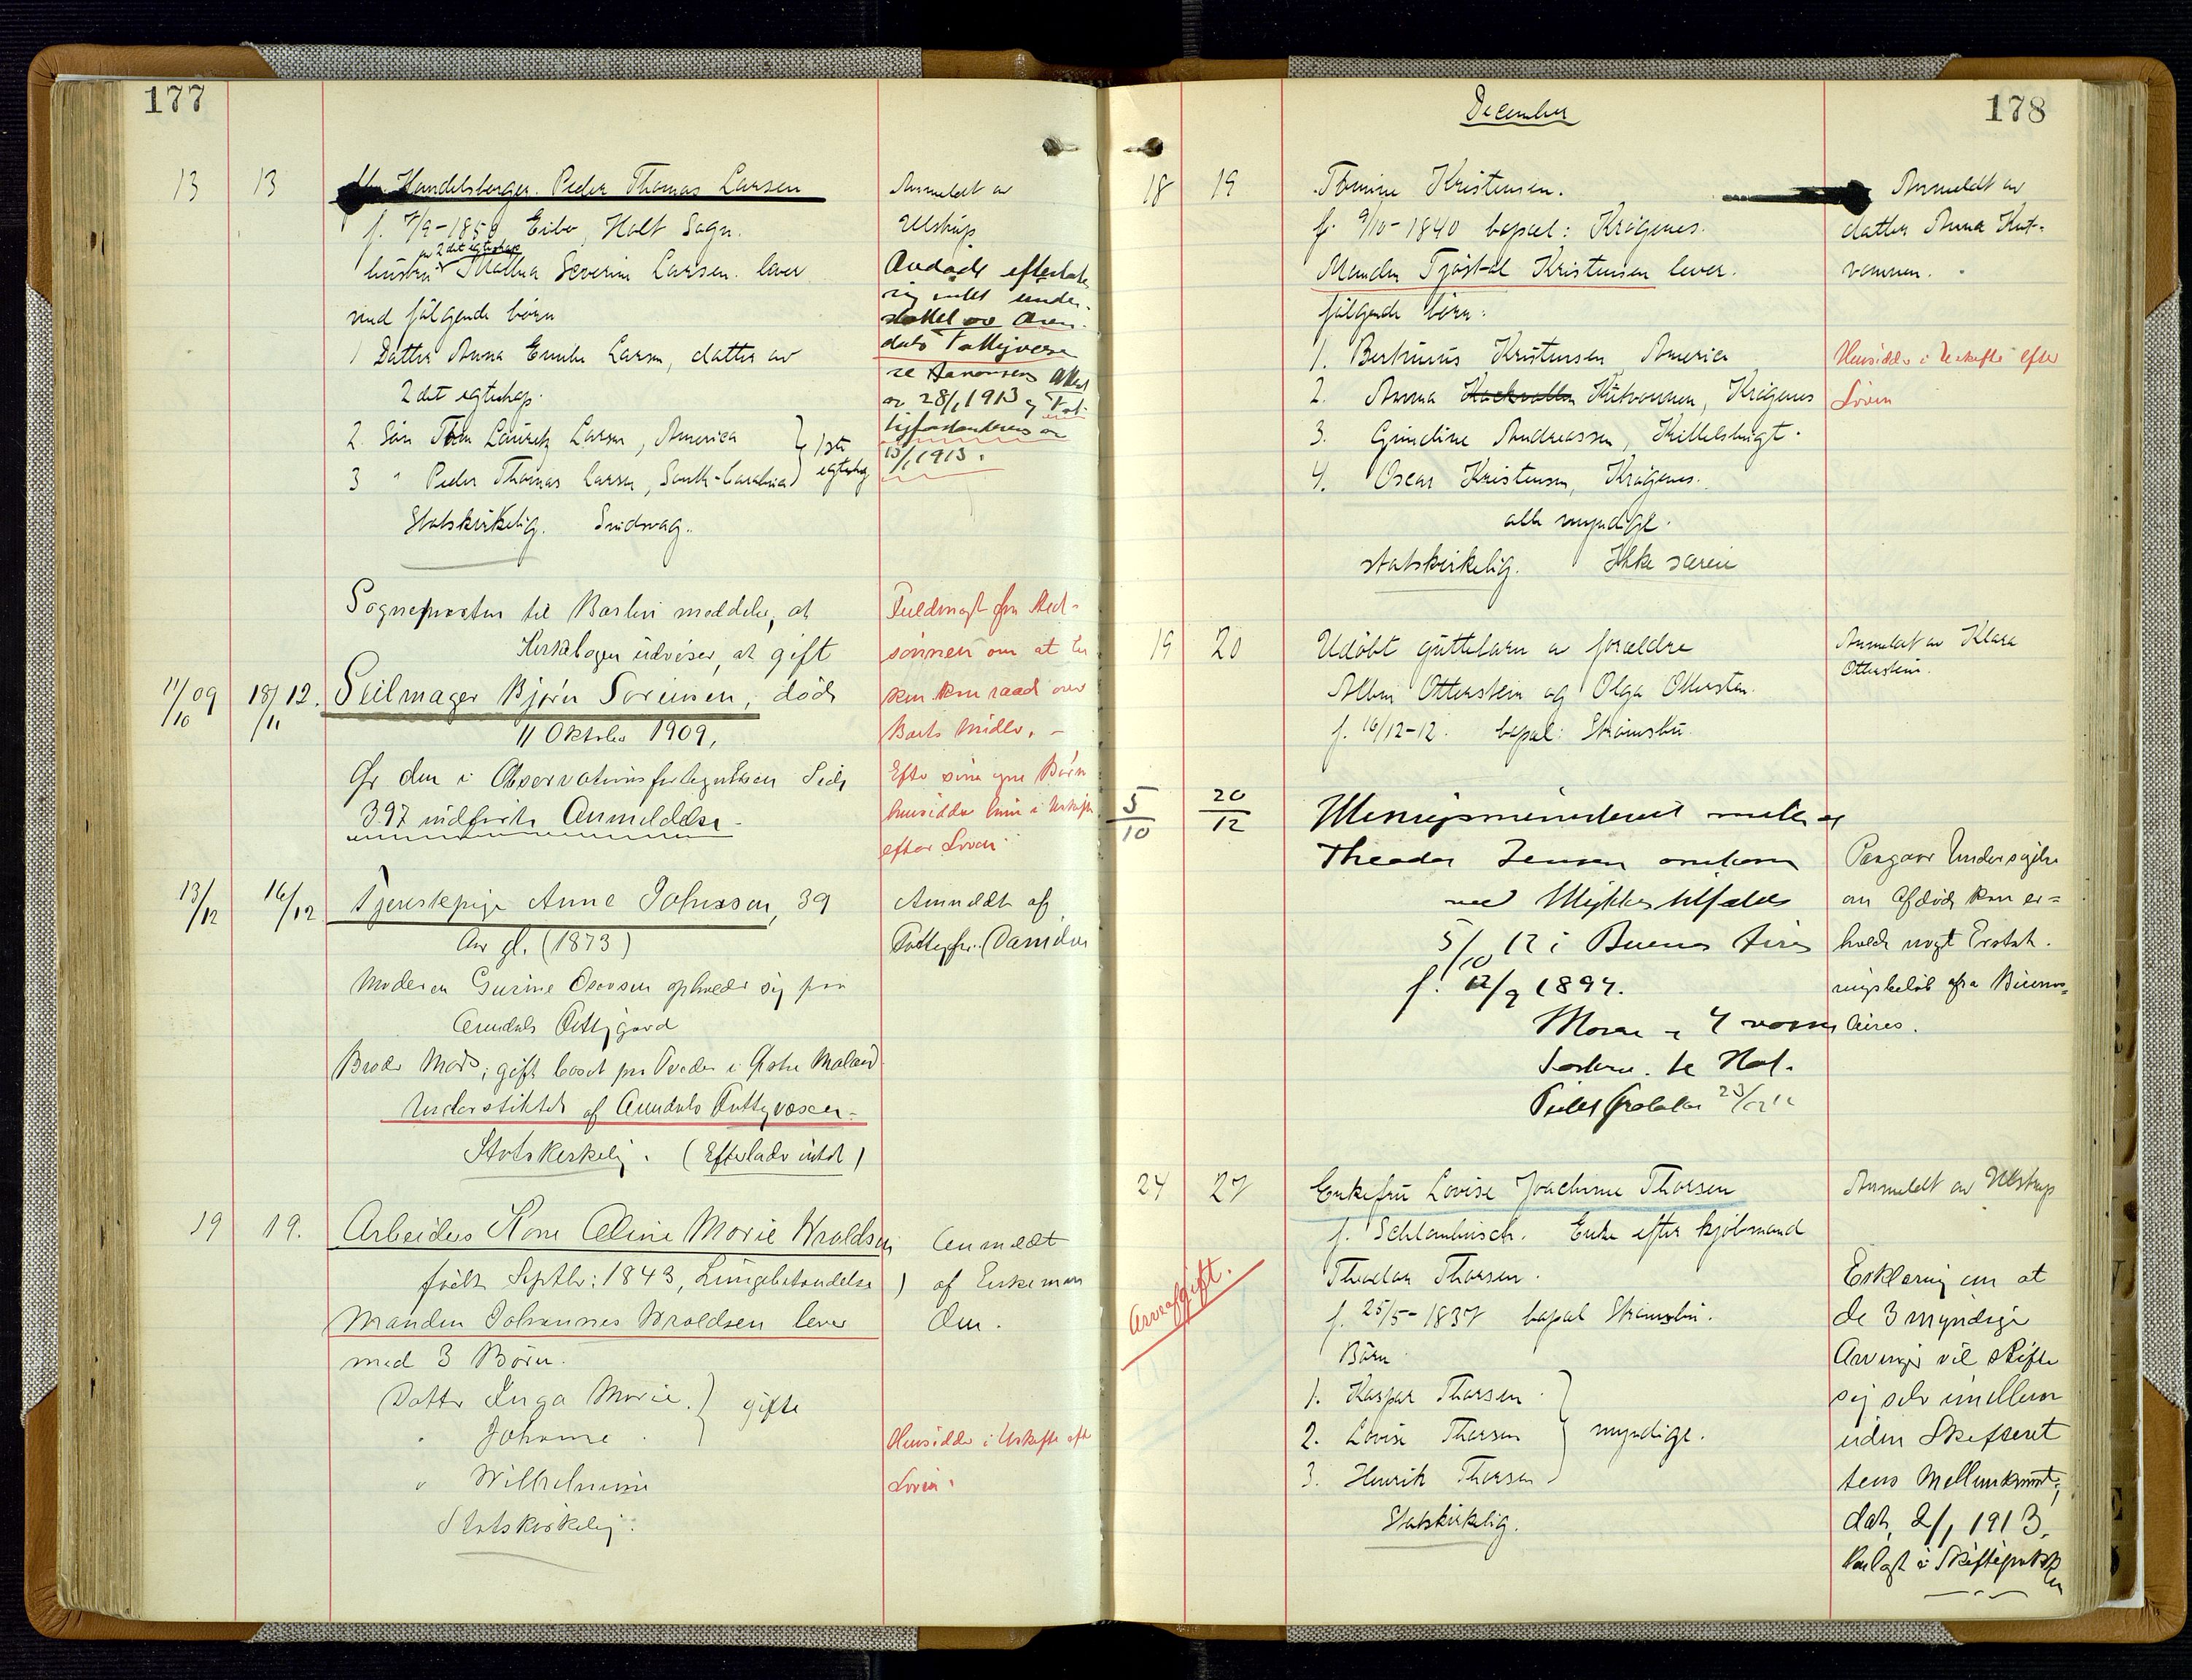 177
13 13 Handelsborger. Peder Thomas Larsen
f. 7/9-1850, Eibo, Holt Sogn.
av 2det egteskap
hustru Severine Larsen lever
med følgende børn
1 Datter Anna Emilie Larsen, datter av
2det egteskap.
2. Søn Lauritz Larsen, America
3 " Peder Thomas Larsen, South-Carolina
1ste egteskap
Statskirkelig. Sindssvag.
Anmeldt av
Ulstrup
Avdøde efterlater
sig intet under-
støttet av Aren-
dals Fattigvæsen
28/1 1913 og Fat-
tigforstanderens av
15/1 1913.
Sogneprestens til Barbu meddeler, at
Kirkebogen udviser, at gift
11/10 09 18/11 12. Seilmager Bjørn Sørensen, død
11 Oktober 1909,
Gr den i Observationsfortegnelsen Side
397 indførte Anmeldelse.
Fuldmagt fra Sted-
sønnen om at
kan raade over
Boets Midler. -
Efter sine egne Børn
hensidder hun i Uskifte
efter Loven.
13/12 16/12 Tjenestepige Anne Johnsson, 39
Aar gl. (1873)
Moderen Gurine opholder sig paa
Arendals Fattiggaard
Broder Mads, gift bosat paa Tveder i Østre Moland
Understøttet af Arendals Fattigvæsen -
Statskirkelig. (Efterlader intet)
Anmeldt af
Fattigfor. Danielsen
19 19. Arbeiders Kone Oline Marie Wroldsen
født Septbr: 1843, Lungebetændelse )
Manden Johannes Wroldsen lever
med 3 Børn.
Datter Inga Marie.
" Johanne
gifte
" Wilhelmine
Statskirkelig.
Anmeldt
af Enkeman
den.
Hensidder i Uskifte eft
Loven.
December
178
18 19 Tomine Kristensen.
f. 9/10-1840 bopæl: Krøgenes.
Manden Tjøstel Kristensen lever.
følgende børn:
1. Bertinius Kristensen, America
2. Anna Hutvannen, Krøgenes
3. Gundine Andreassen, Kittelsbugt.
4. Oscar Kristensen, Krøgenes.
alle myndige.
statskirkelig. Ikke særeie
Anmeldt av
datter Anna Hut-
vannen.
Hensidder i Uskifte efter
Loven
19 20 Udøbt guttebarn av forældre
Albin Otterstein og Olga Otterstein.
f. 16/12-12. bopæl: Strømsbu.
Anmeldt av Klara
Otterstein.
5/10 20/12 Utenrigsministeriet
Theodor Jensen omkom
ved Ulykkestilfælde
5/10 12 i Buenos Aires
f. 12/9 1894.
4
Paagaar Undersøgelse
om Afdøde kan er=
holde noget Erstat-
ningsbeløb fra Buenos=
Aires.
24 27 Enkefru Lovise Joachime Thorsen
f. Schlambusch. Enke efter kjøbmand
Theodor Thorsen.
f. 25/5-1837 bopæl Strømsbu.
Børn
1. Kaspar Thorsen
2. Lovise Thorsen
3. Henrik Thorsen
myndige.
Statskirkelig.
Arveafgift.
Anmeldt av Ulstrup
Erklæring om at
de 3 myndige
Arvinger vil skifte
sig selv imellem
uden Skifteret
tens Mellemkomst,
dat. 2/1 1913.
Henlagt i Skiftepakken